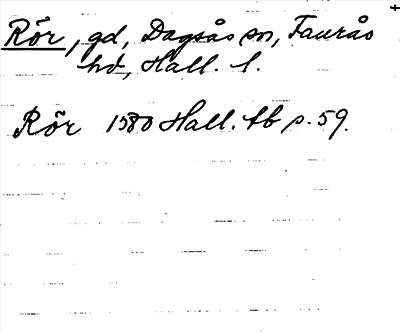 Rör, gd, Dagsås sn, Faurås
hd, Hall. l.
Rör 1580 Hall. tb s. 59.